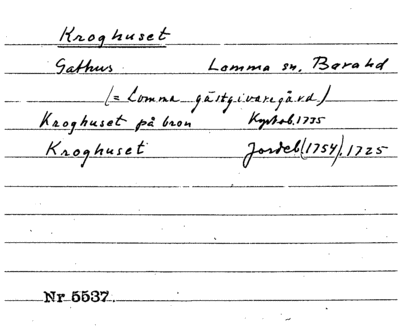 Kroghuset
Gathus Lomma sn. Bara hd
(= Lomma gästgivaregård)
Kroghuset på bron Kyrkob. 1735
Kroghuset Jordeb (1754), 1725
Nr 5537.